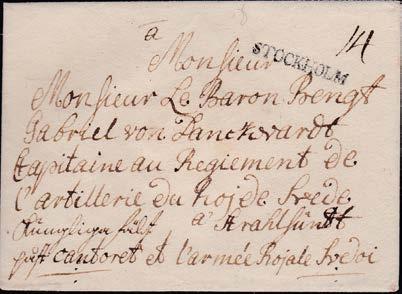 a
14
Monsieur
STOCKHOLM
Monsieur Le Baron Bengt
Gabriel von Lanckvardt
Capitaine au Regiement de
l'artillerie du Roj de Svede
a Strahlsundt
Cantoret et l'armée Rojale Svedoi